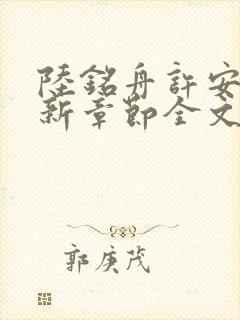 陸銘舟許安
新章節全文
郭庚茂